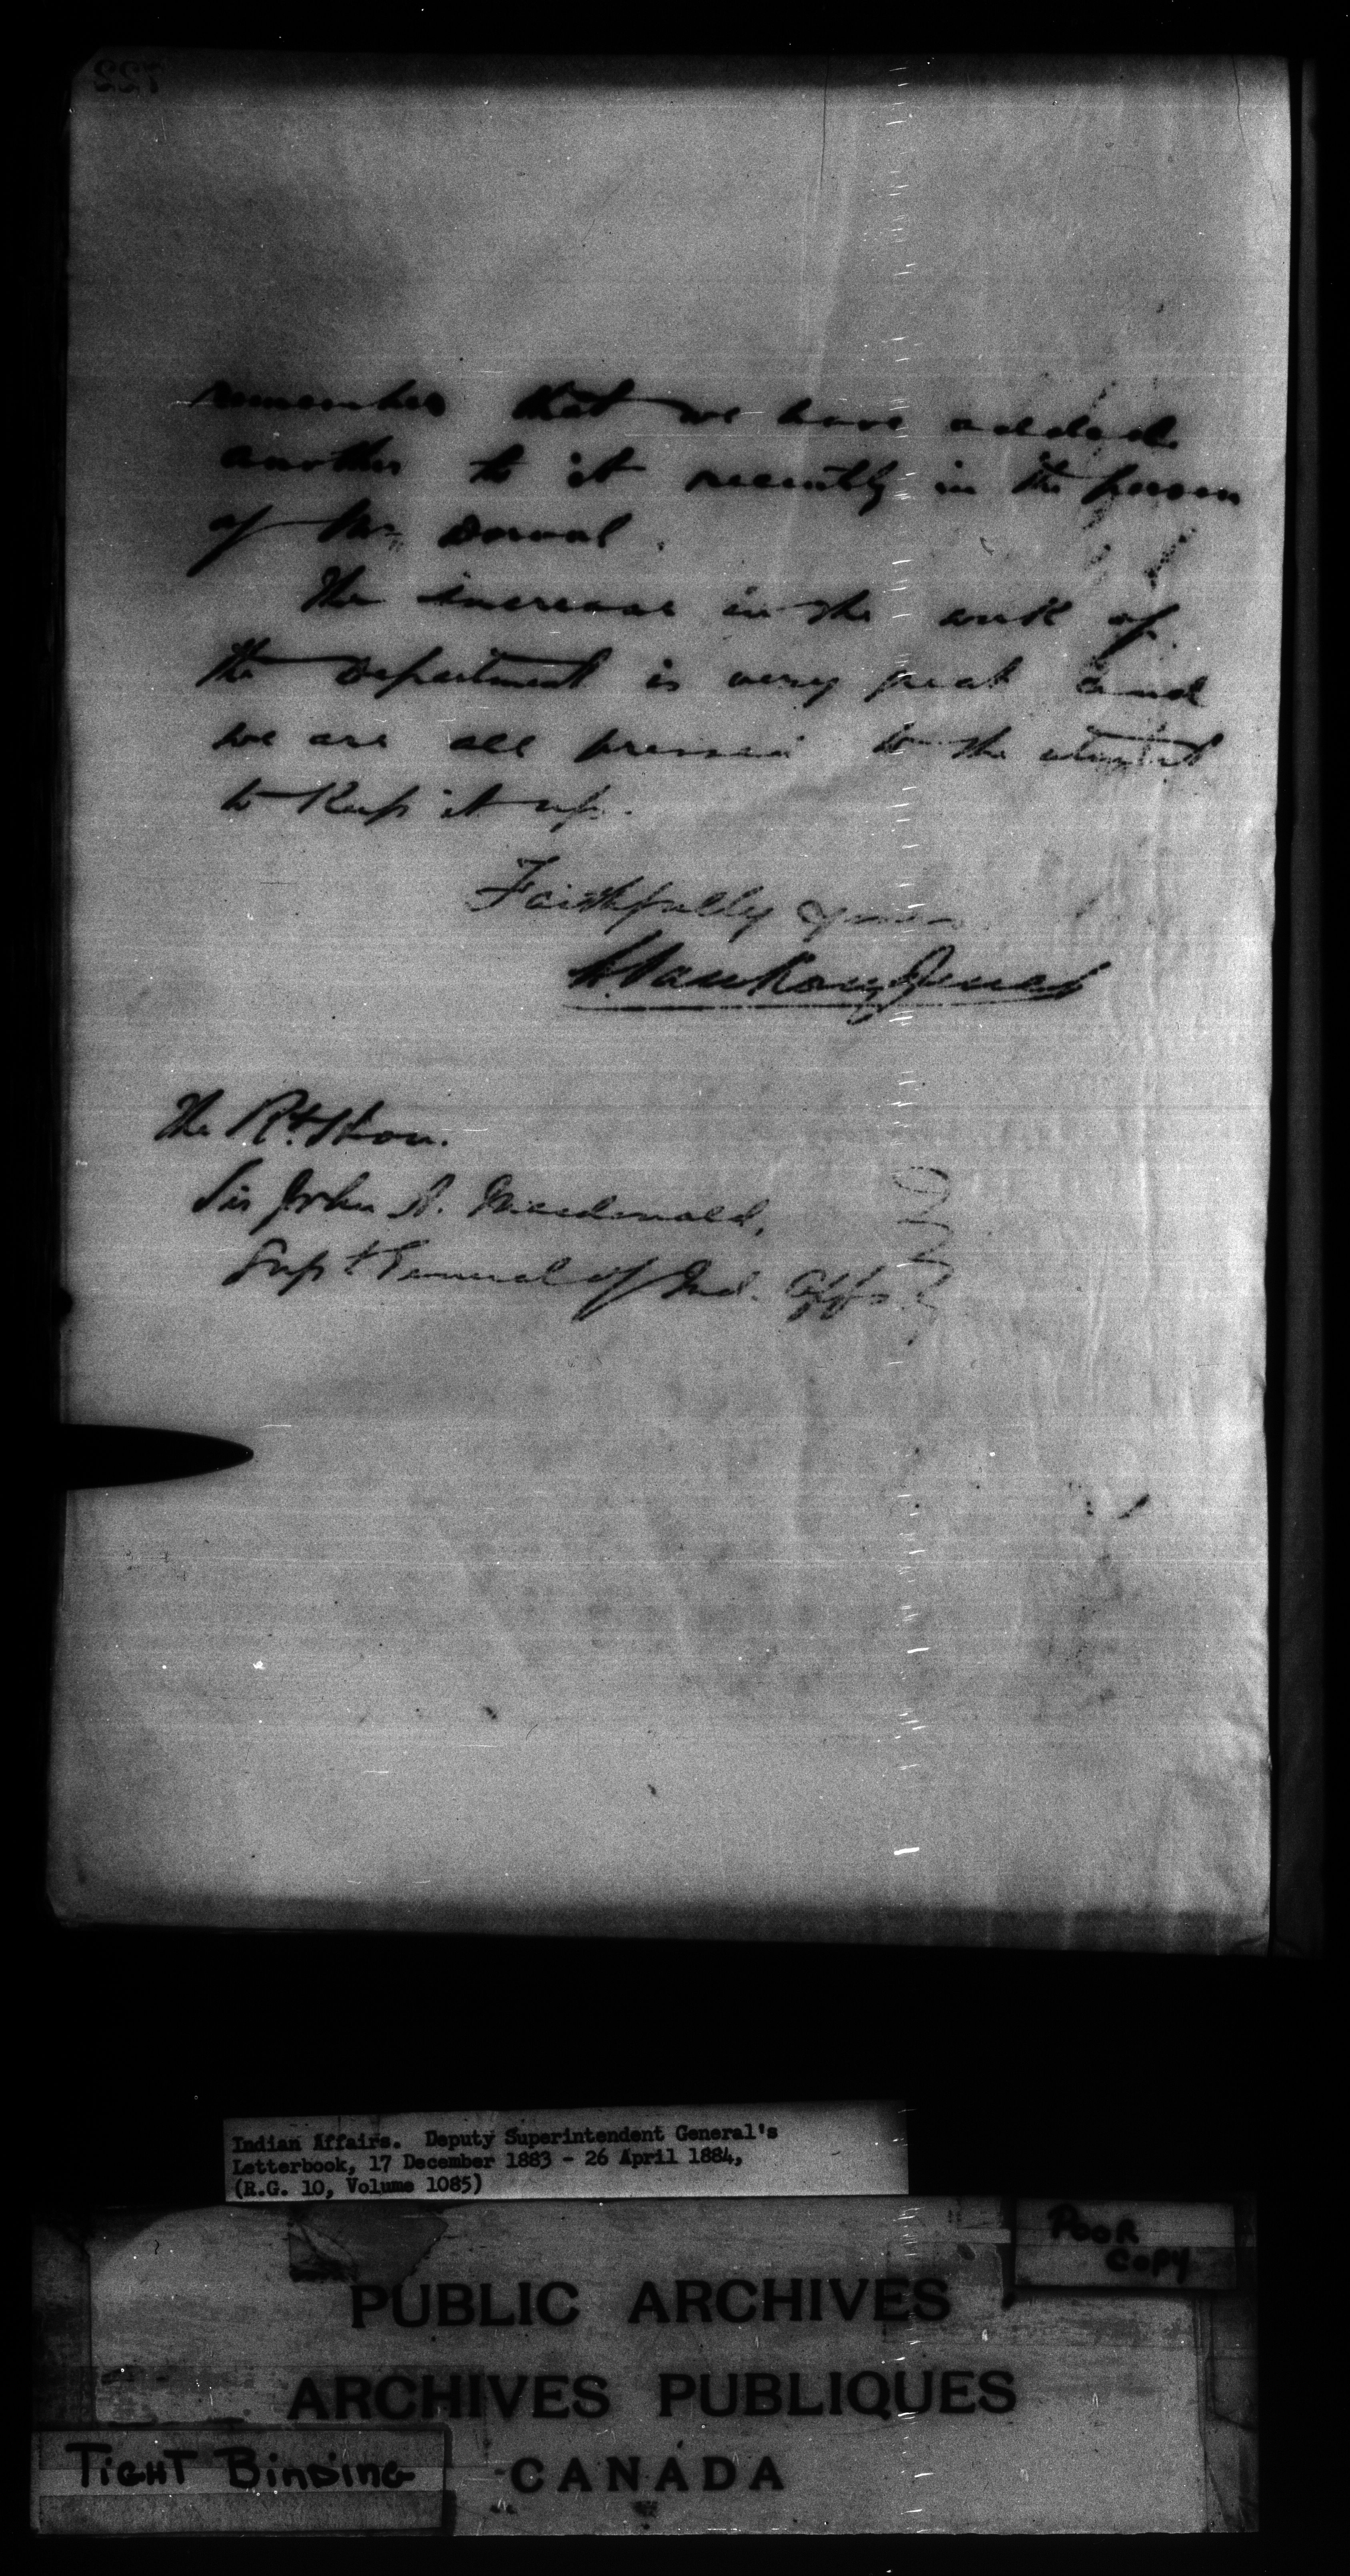 722
remember that we have added
another to it recently in the person
of Mr. Dorval.
The increase in the work of
the Department is very great and
we are all pressed to the utmost
to Keep it up.
Faithfully yours
L. VanKoughnet
The Rt. Hon.
Sir John A. Macdonald,
Supt. General of Ind. Affs.
Indian Affairs. Deputy Superintendent General's
Letterbook, 17 December 1883 - 26 April 1884,
(R.G. 10, Volume 1085)
POOR
COPY
PUBLIC ARCHIVES
ARCHIVES PUBLIQUES
TIGHT BINDING
CANADA